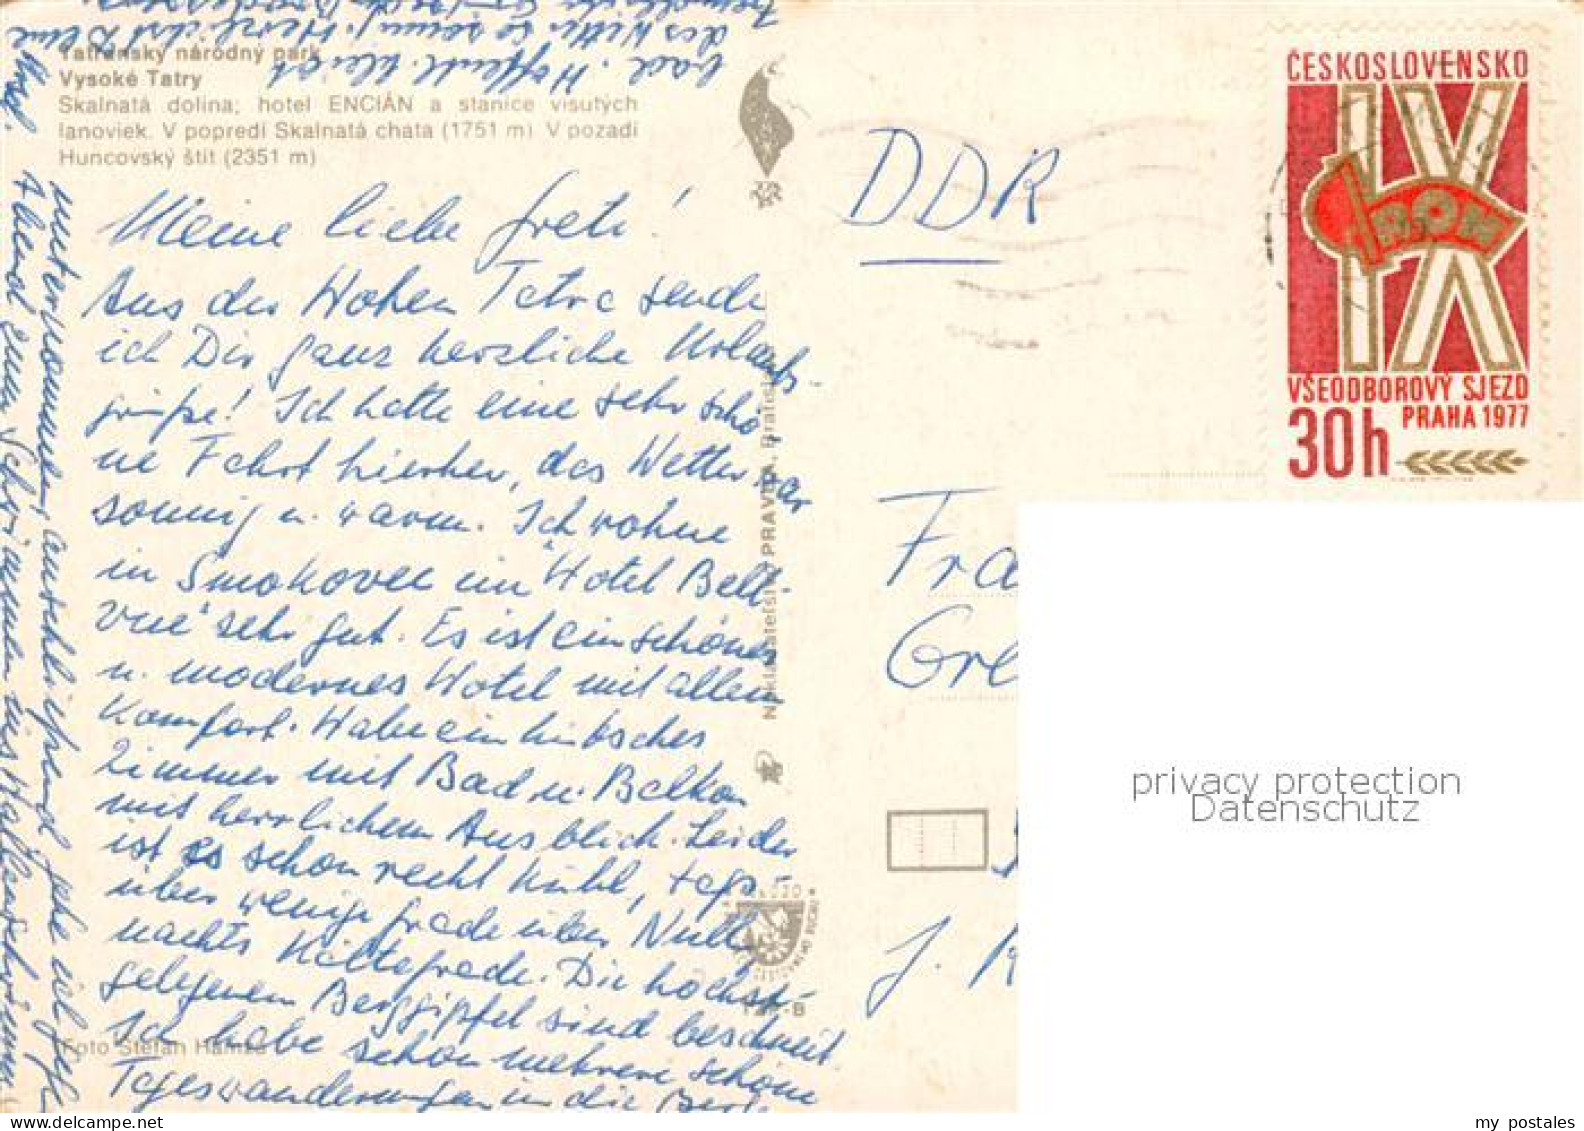 Tatranský národný park
Vysoké Tatry
Skalnatá dolina; hotel ENCIÁN a stanice visutých
lanoviek. V popredí Skalnatá chata (1751 m) V pozadí
Huncovský štít (2351 m)
Meine liebe Grete!
Aus der Hohen Tatra sende
ich Dir ganz herzliche Urlaubs-
grüße! Ich hatte eine sehr schö-
ne Fahrt hierher, das Wetter war
sonnig u. warm. Ich wohne
in Smokovec im "Hotel Bell-
vue" sehr gut. Es ist ein schönes
u. modernes Hotel mit allem
Komfort. Habe ein hübsches
Zimmer mit Bad u. Balkon
mit herrlichem Ausblick. Leider
ist es schon recht kühl, tags-
über wenige Grade über Null,
nachts Kältegrade. Die höchst-
gelegenen Berggipfel sind beschneit.
Ich habe schon mehrere schöne
Tageswanderungen in die Berge
unternommen, anschließend gehe ich jeden
Abend zum Schwimmen ins Hallenschwimm-
bad. Hoffentl. bleibt
das Wetter so schön! Herzlichst Deine
Foto Štefan Hamza
Nakladateľstvo PRAVDA, Bratislava
DDR
ČESKOSLOVENSKO
IX
ROH
VŠEODBOROVÝ SJEZD
PRAHA 1977
30h
Fra
Gre
privacy protection
Datenschutz
my postales